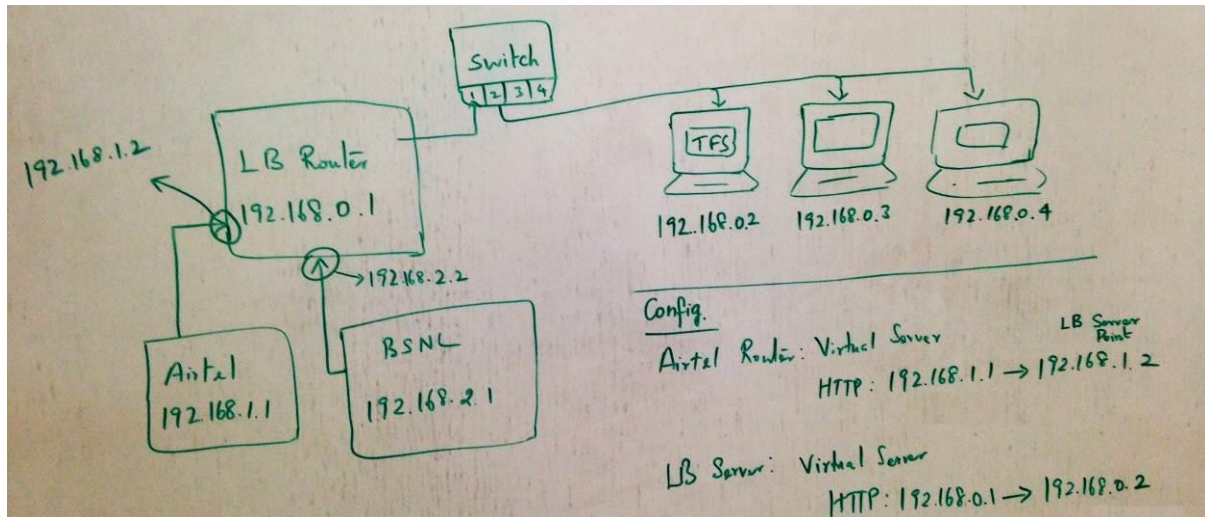 Switch
1 2 3 4
192.168.1.2
LB Router
192.168.0.1
192.168.2.2
Airtel
192.168.1.1
BSNL
192.168.2.1
TFS
192.168.0.2
192.168.0.3
192.168.0.4
Config.
Airtel Router: Virtual Server
LB Server Point
HTTP: 192.168.1.1 → 192.168.1.2
LB Server: Virtual Server
HTTP: 192.168.0.1 → 192.168.0.2